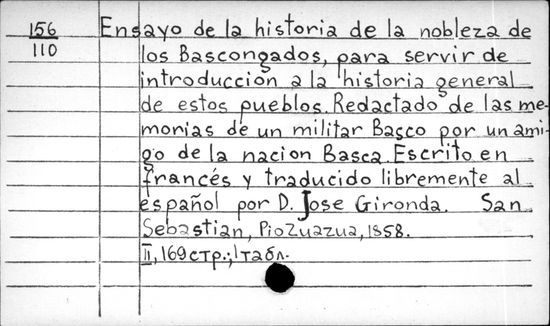 156 Ensayo de la historia de la nobleza de
110 los Bascongados, para servir de
introducción a la historia general
de estos pueblos. Redactado de las me-
morias de un militar Basco por un ami-
go de la nacion Basca. Escrito en
francés y traducido libremente al
español por D. Jose Gironda. San
Sebastian, Pio Zuazua, 1858.
II, 169 стр.; 1 табл.